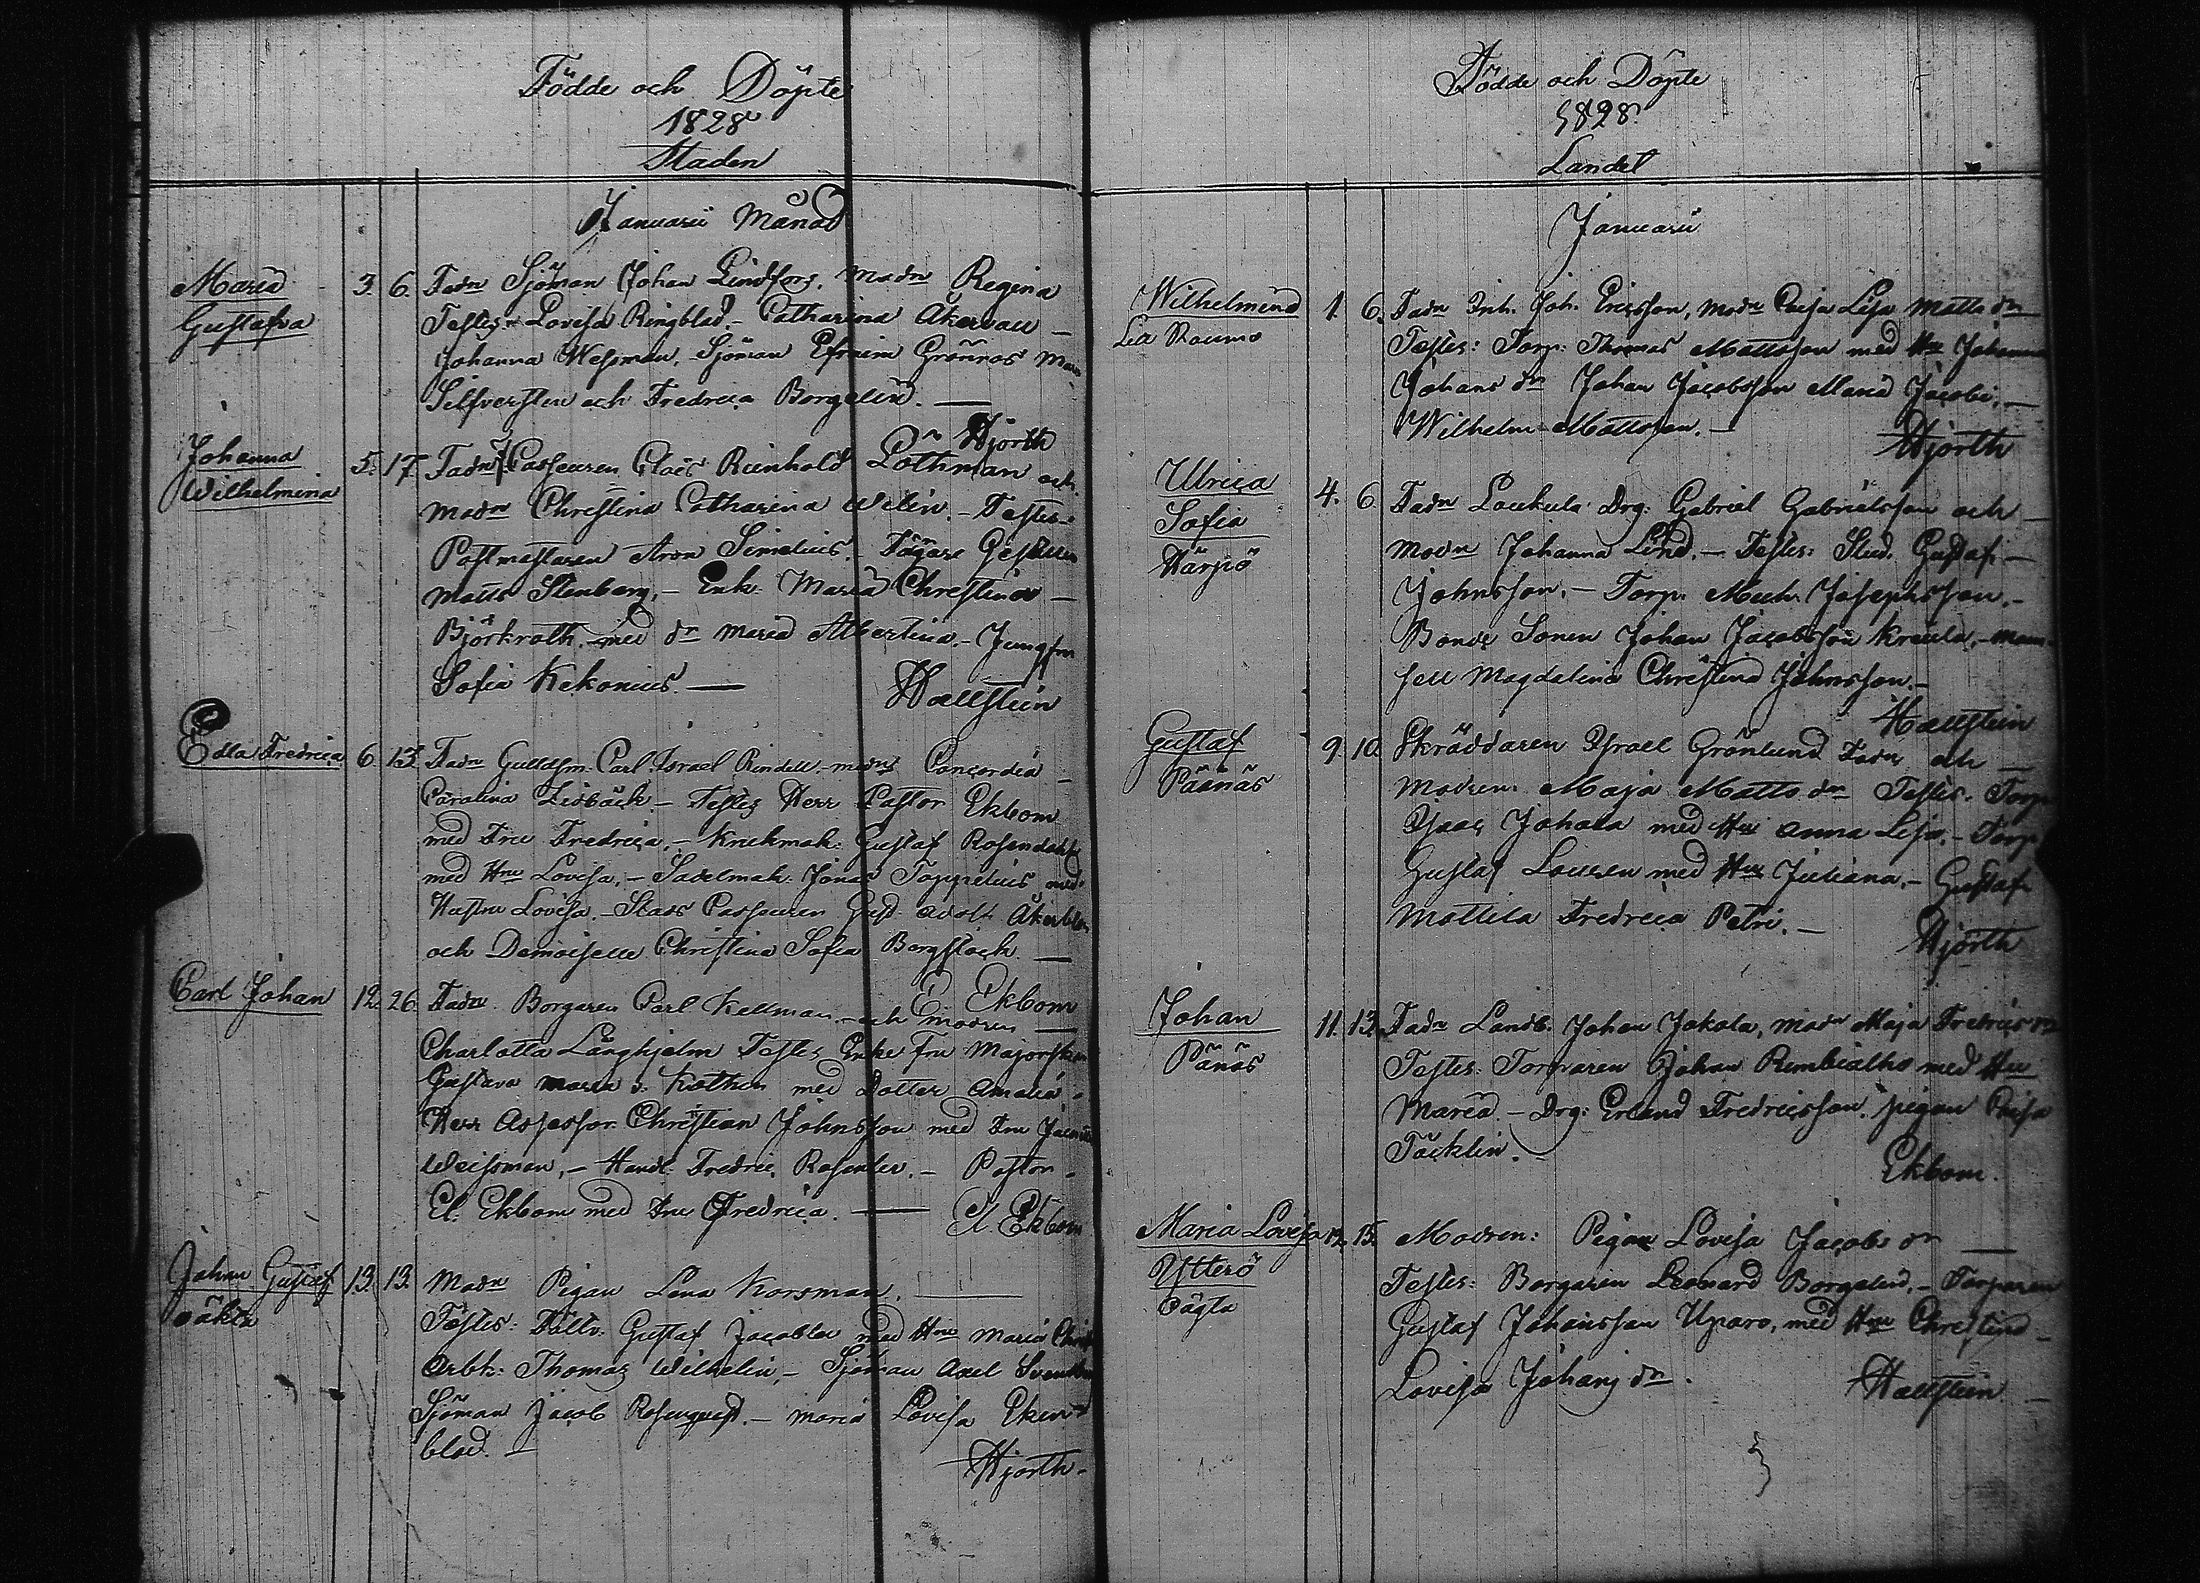 Födde och Döpte
1828
Staden
Januarii Månad
Maria Gustafva 3. 6. Fadn Sjöman Johan Lindfors. Modn Regina
Testes: Lovisa Ringblad. - Catharina Åkervall -
Johanna Wesman. Sjöman Efraim Grönroos
Silfversten och Fredrica Borgelin. -
Hjorth
Johanna Wilhelmina 5. 17. Fadn Casseuren Claës Reinhold Löthman och
Modn Christina Catharina Welin. - Testes:
Postmestaren Aron Simelius. - Fägare Gesällen
Matts Stenberg, - Enk. Maria Christina -
Björkroth med dr Maria Albertina. - Jungfru
Sofia Kekonius. -
Hællstein
Edla Fredrica 6. 13. Fadn Gulldsm. Carl Israel Rindell. modn Concordia -
Carolina Lidbäck - Testes Herr Pastor Ekbom
med Fru Fredrica, - Krukmak: Gustaf Rosendahl
med Hru Lovisa, - Sadelmak: Jonas Toppelius med
Hustru Lovisa. - Stads Casseuren Gust. Adolf
och Demoiselle Christina Sofia Bergstock -
Ekbom
Carl Johan 12. 26. Fadn Borgaren Carl Kellman - och Modren -
Charlotta Långhjelm Testes Enke Fru Majorskan
Gustava Maria v. Kothen med Dotter Amalia
Herr Assessor Christian Johnsson med Fru
Weissman, - Handl. Fredric Rosenter. - Pastor
El. Ekbom med Fru Fredrica. -
El. Ekbom
Johan Gustaf oäkta 13. 13. Modn Pigan Lena Korsman.
Testes: Gustaf Jacobten med Hru Maria
Arbk: Thomas Wilhelin, - Sjöman Axel
Sjöman Jacob Rosenquist. - Maria Lovisa Eken
blad. -
Hjorth.
Födde och Döpte
1828
Landet
Januarii
Wilhelmina 1. 6. Fadn Inh. Joh. Ericsson, modn Caisa Lisa Matts dr
Lea Raumo Testes: Torp: Thomas Mattsson med Hu Johanna
Johans dr Johan Jacobsson Maria Jacobi. -
Wilhelm Mattsson. -
Hjorth
Ulrica Sofia Härpö 4. 6. Fadn Loukula Drg: Gabriel Gabrielsson och
Modn Johanna Lind. - Testes: Stud. Gustaf -
Johnsson. - Torp. Mich. Josephsson. -
Bonde Sonen Johan Jacobsson Kraula, - Mam
sell Magdalina Christina Johnsson. -
Hællstein
Gustaf Pånäs 9. 10. Skräddaren Israel Grönlund Fadn och -
Modren Maja Matts dr Testes. Torp
Isac Johola med Hu Anna Lisa. - Torp
Gustaf Lousen med Hu Juliana. - Gustaf
Mattila Fredrica Petri. -
Hjorth
Johan Pånäs 11. 13. Fadn Landb. Johan Jakola, modn Maja Fredrics dr
Testes: Torparen Johan Rembialho med Hu
Maria - Drg: Erland Fredricsson. pigan Caisa
Täcklin. -
Ekbom.
Maria Lovisa 12. 15. Modren: Pigan Lovisa Jacobs dr -
Ytterö Oägta Testes: Borgaren Leonard Borgelin, - Torparen
Gustaf Johansson Uparo, med Hru Christina -
Lovisa Johans dr.
Hællstein